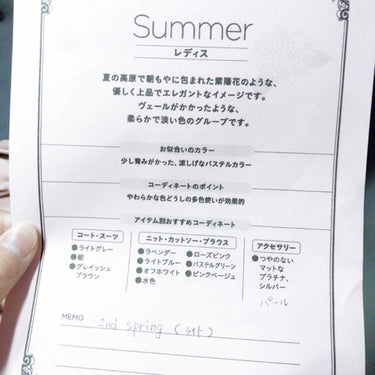 Summer
レディス
夏の高原で朝もやに包まれた紫陽花のような、
優しく上品でエレガントなイメージです。
ヴェールがかかったような、
柔らかで淡い色のグループです。
お似合いのカラー
少し青みがかった、涼しげなパステルカラー
コーディネートのポイント
やわらかな色どうしの多色使いが効果的
アイテム別おすすめコーディネート
コート・スーツ
●ライトグレー
●紺
●グレイッシュ
ブラウン
ニット・カットソー・ブラウス
●ラベンダー ●ローズピンク
●ライトブルー ●パステルグリーン
●オフホワイト ●ピンクベージュ
●水色
アクセサリー
●つやのない
マットな
プラチナ、
シルバー
パール
MEMO 2nd spring (ライト)